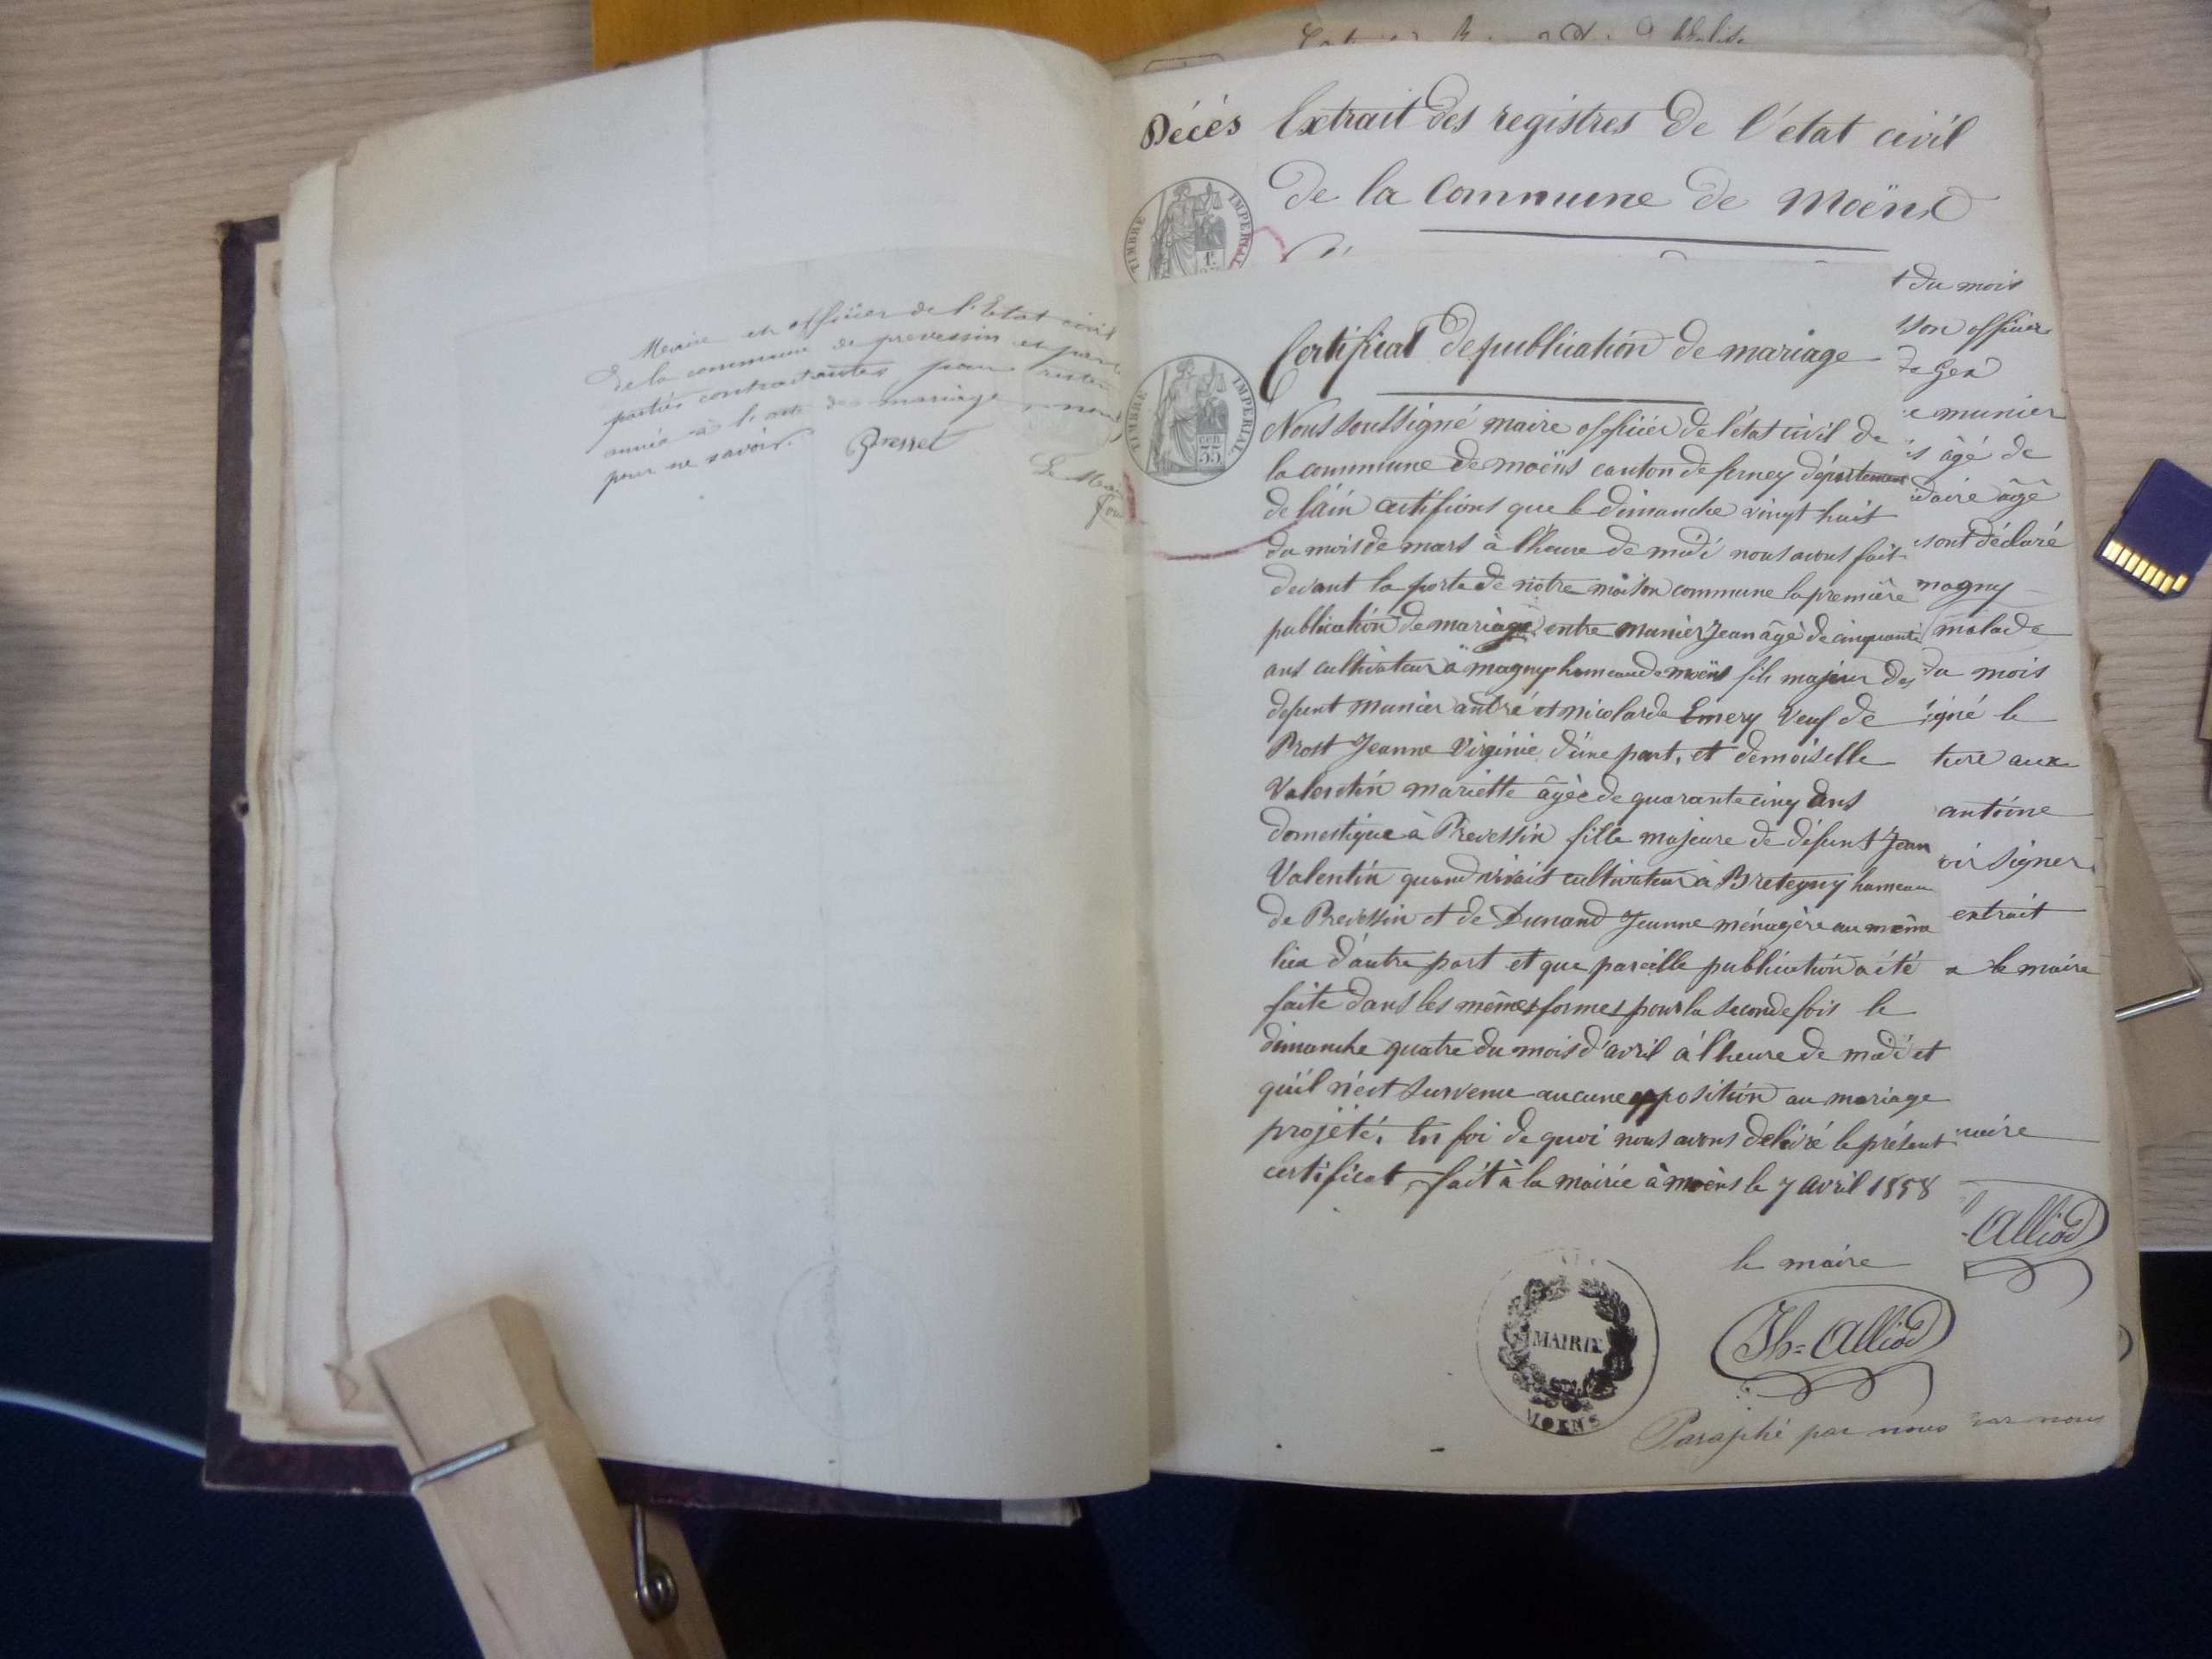 Maire et officier de l'Etat civil
de la commune de prevessin et par
parties contractantes pour rester
année à l'acte de mariage
pour ne savoir.
Gresset
Le Mai
Décès
Extrait des registres de l'état civil
de la Commune de Moëns
TIMBRE IMPERIAL
1f.
TIMBRE IMPERIAL
cen
35
Certificat de publication de mariage
Nous soussigné maire officier de l'état civil de
la commune de moëns canton de ferney département
de l'ain certifions que le dimanche vingt huit
du mois de mars à l'heure de midi nous avons fait
devant la porte de nôtre maison commune la première
publication de mariage entre munier Jean âgé de cinquante
ans cultivateur à magny hameau de moëns fils majeur des
defunt munier andré et nicolarde Emery Veuf de
Prost Jeanne Virginie d'une part, et demoiselle
Valentin mariette âgée de quarante cinq ans
domestique à Prevessin fille majeure de défunt Jean
Valentin quand vivait cultivateur à Bretegny hameau
de Prevessin et de Dunand Jeanne ménagère au même
lieu d'autre part et que pareille publication a été
faite dans les mêmes formes pour la seconde fois le
dimanche quatre du mois d'avril à l'heure de midi et
qu'il n'est survenu aucune opposition au mariage
projeté. En foi de quoi nous avons délivré le présent
certificat, fait à la mairie à moëns le 7 avril 1858
le maire
Jh= Alliod
MAIRIE
MOENS
Paraphé par nous
t du mois
son officier
de Gex
e munier
s âgé de
daire âgé
sont déclaré
magny
malade
du mois
igné le
ture aux
antoine
oir signer
extrait
le maire
maire
Alliod
par nous